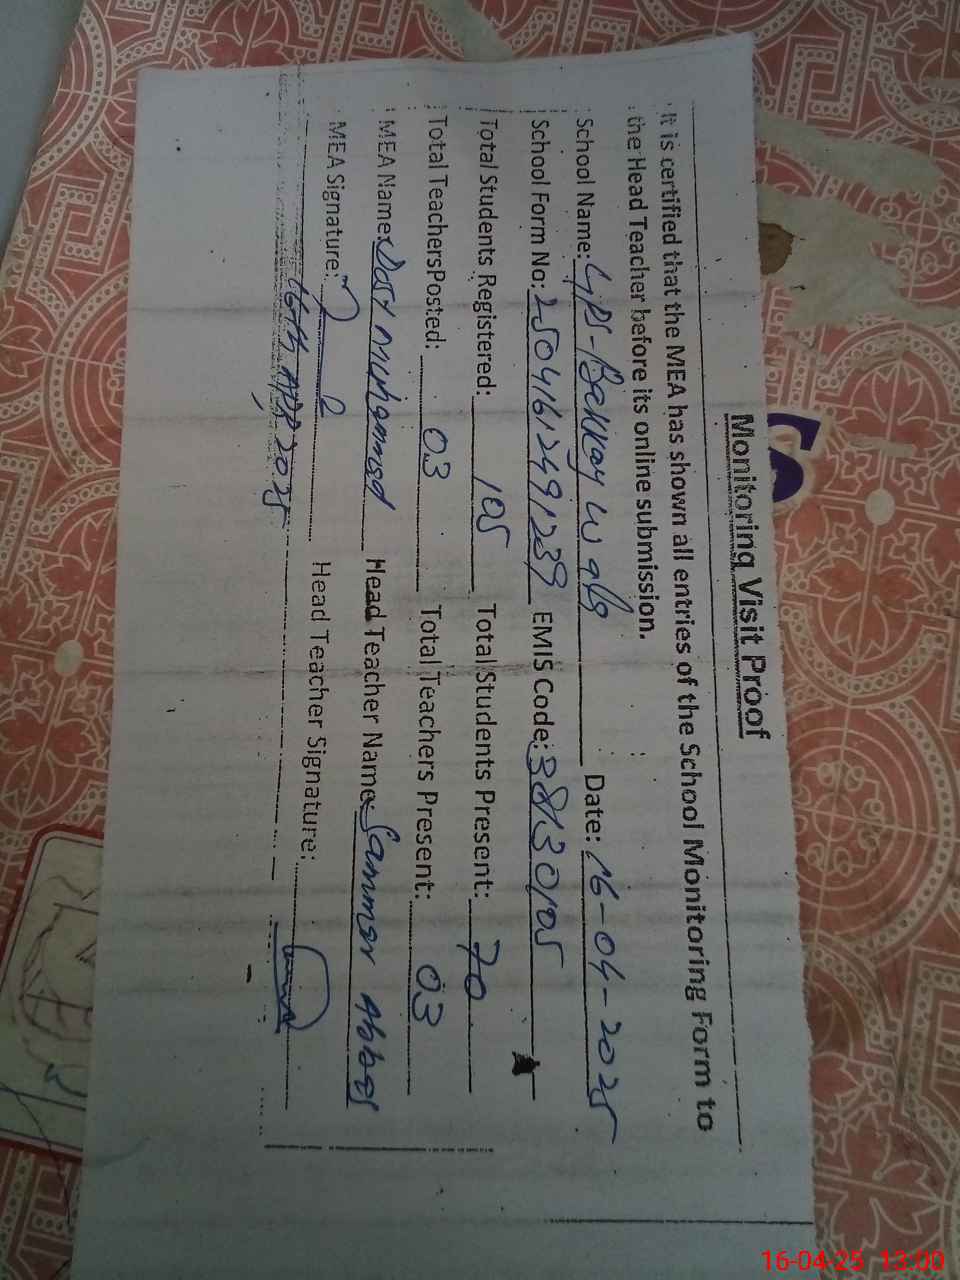 Monitoring Visit Proof
It is certified that the MEA has shown all entries of the School Monitoring Form to
the Head Teacher before its online submission.
School Name: GPS-Bakkay Wala Date: 16-04-2025
School Form No: 25041612491239 EMIS Code: 38130105
Total Students Registered: 105 Total Students Present: 70
Total Teachers Posted: 03 Total Teachers Present: 03
MEA Name: Dost Muhammad Head Teacher Name: Sammar Abbas
MEA Signature: Head Teacher Signature:
16th APR 2025
16-04-25 13:00